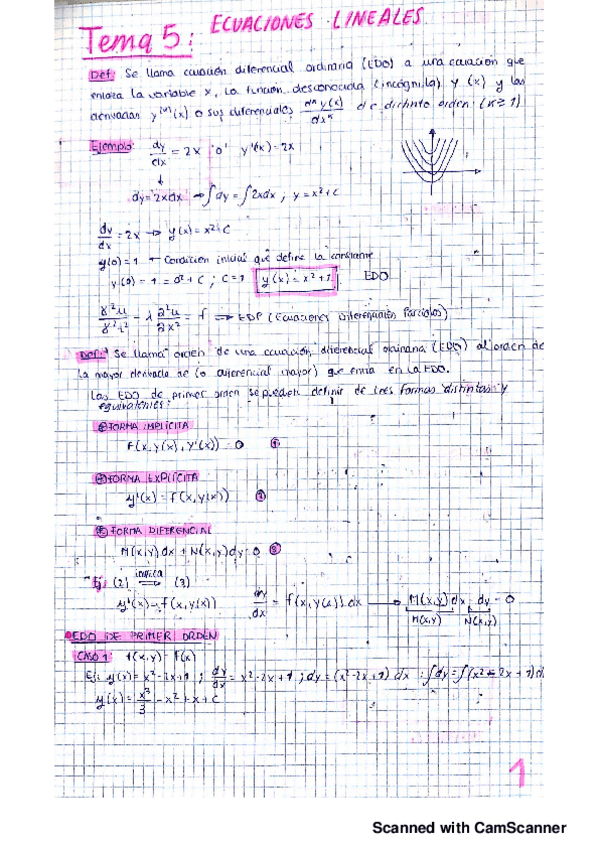 Tema 5: ECUACIONES LINEALES
Def: Se llama ecuación diferencial ordinaria (EDO) a una ecuación que
enlaza la variable x, la función desconocida (incógnita) y(x) y las
derivadas y^(n)(x) o sus diferenciales d^n y(x)/dx^n de distinto orden (n≥1)
Ejemplo: dy/dx = 2x 'o' y'(x) = 2x
↓
dy = 2xdx → ∫dy = ∫2xdx ; y = x²+c
dy/dx = 2x → y(x) = x²+C
y(0)=1 → Condición inicial que define la constante
y(0) = 1 = 0²+C ; C=1 y(x) = x²+1 EDO
= f ⇒ EDP (Ecuaciones Diferenciales Parciales)
Def: Se llama orden de una ecuación diferencial ordinaria (EDO) al orden de
la mayor derivada de (o diferencial mayor) que en la EDO.
Las EDO de primer orden se pueden definir de tres formas distintas y
equivalentes:
FORMA IMPLÍCITA
F(x, y(x), y'(x)) = 0 ①
FORMA EXPLÍCITA
y'(x) = f(x, y(x)) ②
FORMA DIFERENCIAL
M(x,y) dx + N(x,y) dy = 0 ③
Ej: (2) ⇒ (3)
y'(x) = f(x, y(x)) dy/dx = f(x, y(x)) dx → M(x,y) dx dy = 0
M(x,y) N(x,y)
EDO DE PRIMER ORDEN
CASO 1: f(x,y) = f(x)
Ej: y'(x) = x²-2x+1 ; dy/dx = x²-2x+1 ; dy = (x²-2x+1) dx ; ∫dy = ∫(x²-2x+1)d
y(x) = x³/3 - x² + x + C
1
Scanned with CamScanner